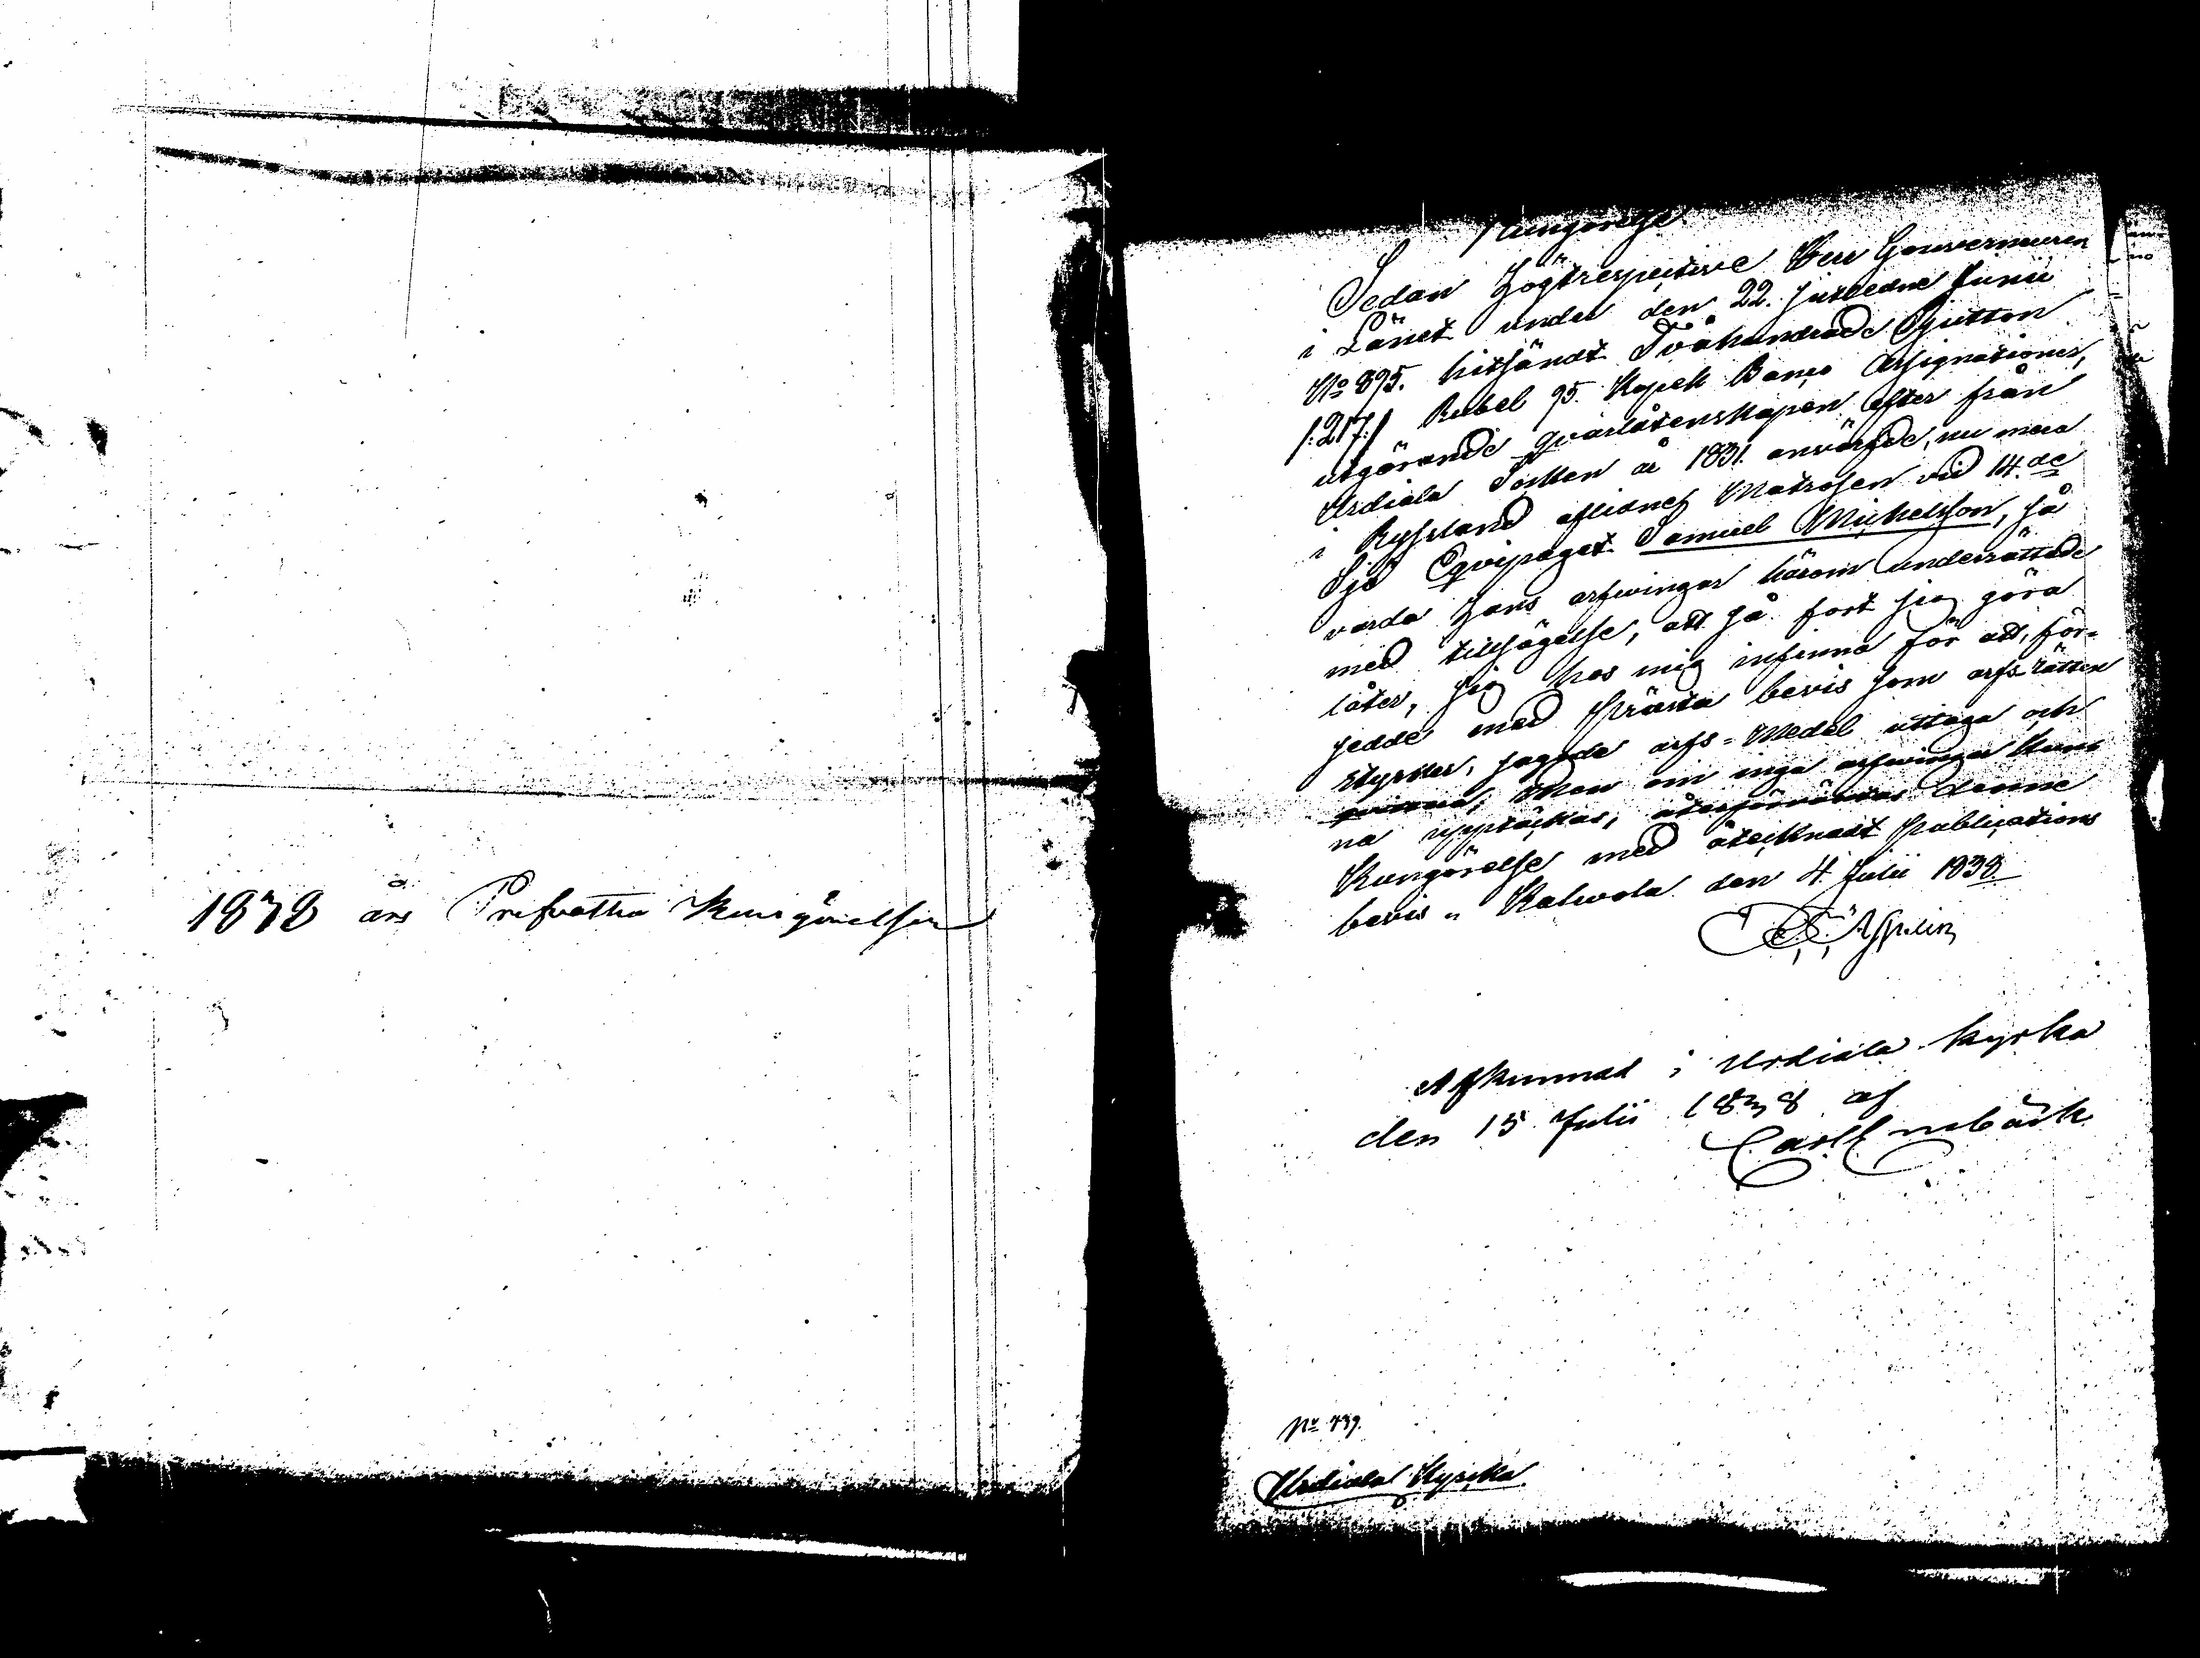 1838 års Prifvatta Kungörelser
Kungörelse
Sedan Högtrespective Herr Gouverneuren
i Länet under den 22. sistledne Junii
No 895. hitsändt Tvåhundrade Sjutton
/:217:/ Rubel 95. Kopek Banco Assignationer,
utgörande qvarlåtenskapen efter från
Urdiala Socken år 1831. anvärfde, nu mera
i Ryssland aflidnes Matrosen vid 14.de
Sjö Eqvipaget Samuel Michelsson, så
varda hans arfwingar härom underrättade
med tillsägelse, att så fort sig göra
låter, sig hos mig infinna för att, för-
sedde med Prästa bevis som arfs rätten
styrker, sagde arfs-Medel uttaga och
qvittera; Men om inga arfwingar kun-
na upptäckas, återförväntas denne
Kungörelse med åtecknadt publications
bevis. Kalvola den 4 Julii 1838.
Asplin
Afkunnad i Urdiala kyrka
den 15 Julii 1838 af
Carl
No 739.
Urdiala Kyrka